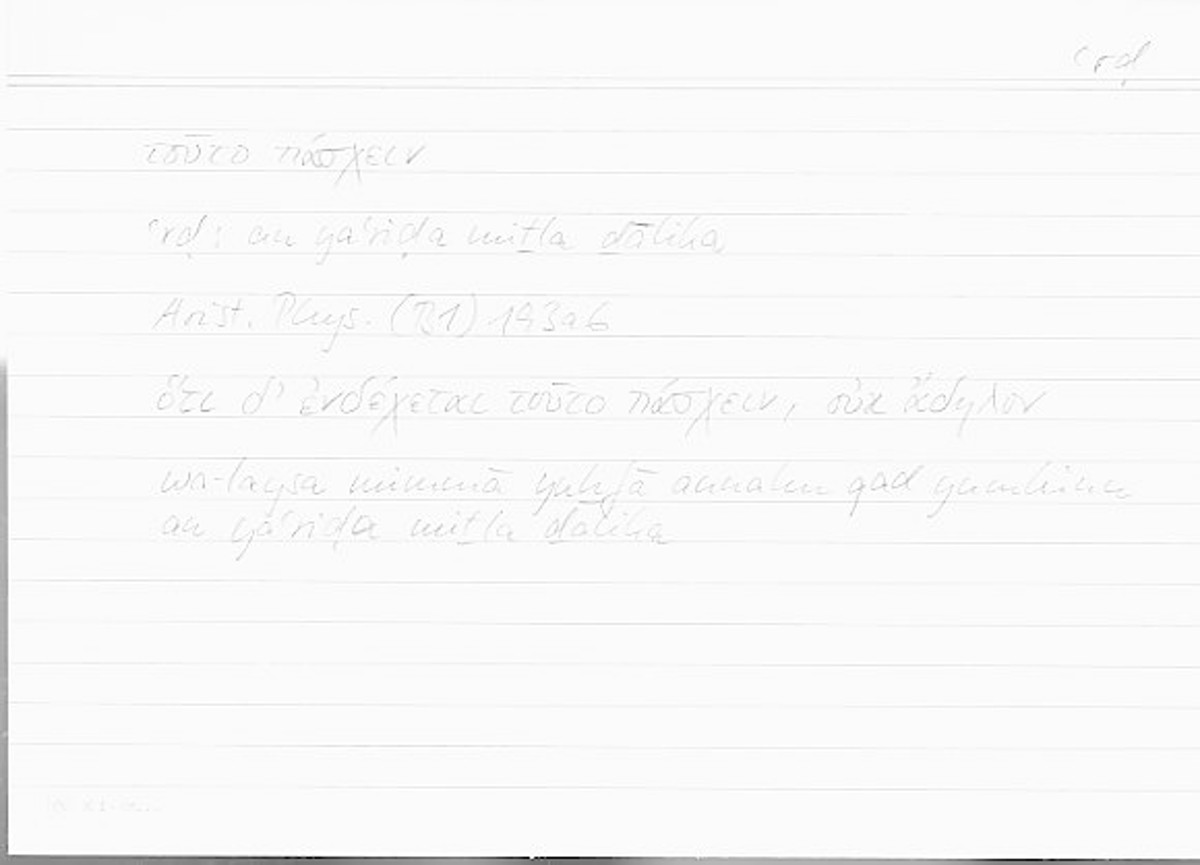 ʿrḍ
τοῦτο πάσχειν
ʿrḍ: an yaʿriḍa miṯla ḏālika
Arist. Phys. (B1) 193a6
ὅτι δ' ἐνδέχεται τοῦτο πάσχειν, οὐκ ἄδηλον
wa-laysa mimmā yuḫfā annahu qad yumkinu
an yaʿriḍa miṯla ḏālika